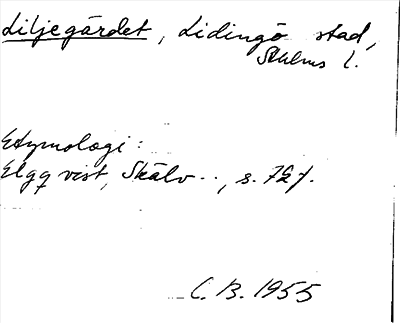 Liljegärdet, Lidingö stad,
Sthlms l.
Etymologi:
Elgqvist, Skälv.., s. 72 f.
C. B. 1955